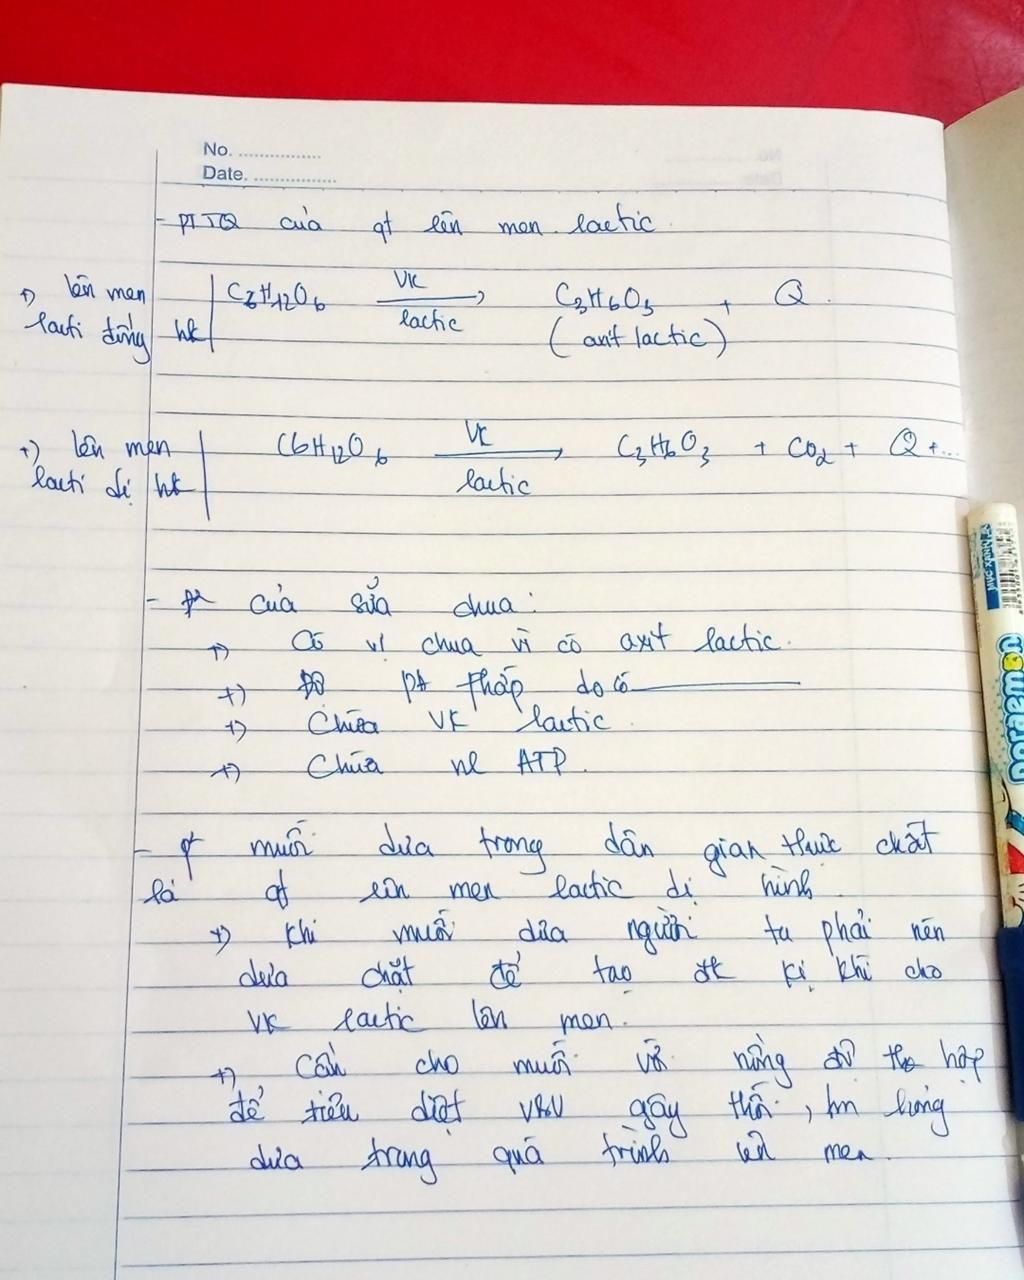 No. ................
Date. ................
- PTTQ của qt lên men lactic.
+) lên men
lacti đồng hk
C6H12O6 VK lactic → C3H6O3 + Q.
(axit lactic)
+) lên men
lacti dị hk
C6H12O6 VK lactic → C3H6O3 + CO2 + Q + ...
- của sữa chua:
+) Có vị chua vì có axit lactic.
+) Độ pH thấp do có
+) Chứa VK lactic.
+) Chứa nl ATP.
- qt muối dưa trong dân gian thực chất
là qt lên men lactic dị hình.
+) Khi muối dưa người ta phải nén
dưa chặt để tạo đk kị khí cho
VK lactic lên men.
+) Cần cho muối với nồng độ hợp
để tiêu diệt gây thối, hỏng
dưa trong quá trình lên men.
MỰC XANH
Doraemon